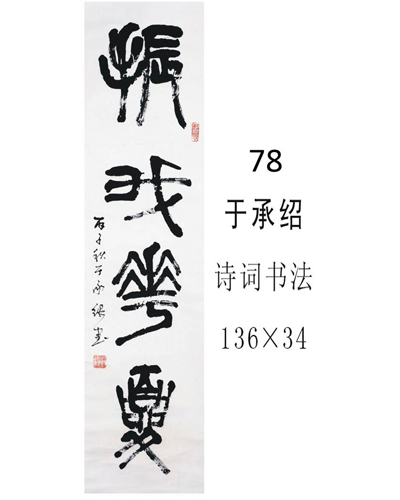 振我华夏
丙子秋于承绍书
78
于承绍
诗词书法
136×34